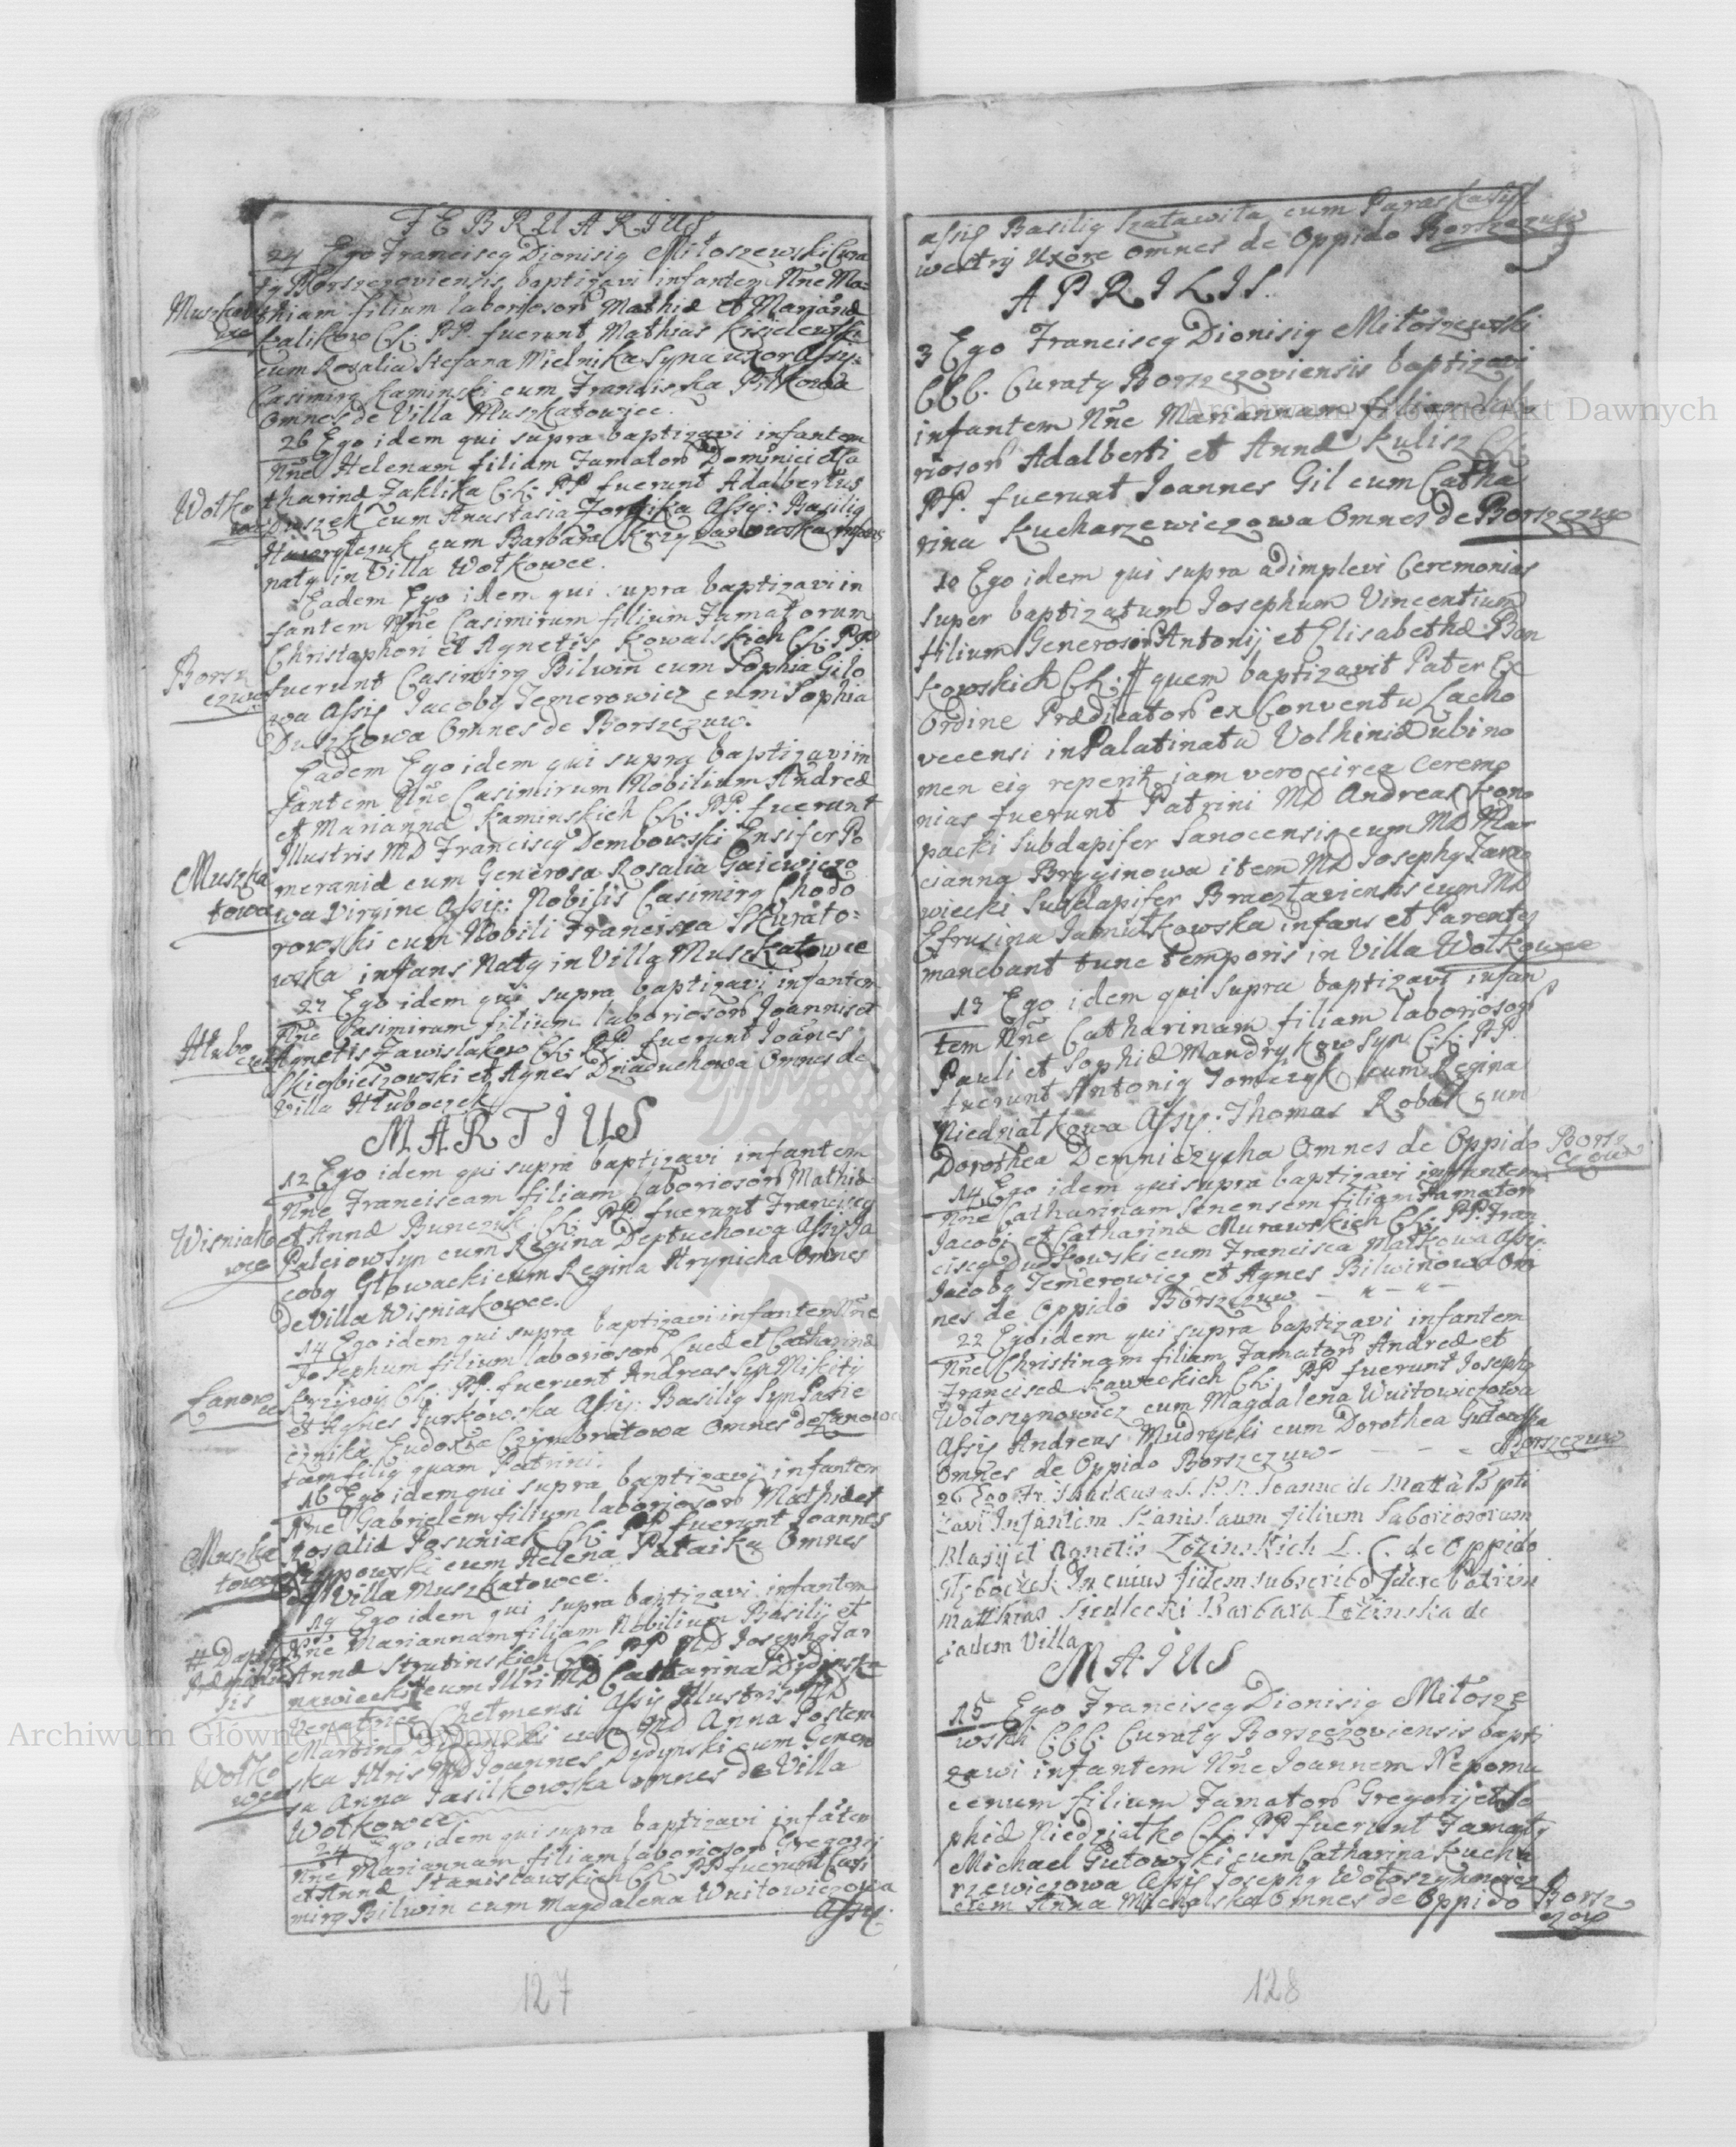 FEBRUARIUS
24 Ego Franciscg Dionisig Miłoszewski Cura
tg Borszczoviensis baptizavi infantem Nne Ma=
Muszkatow
wce
thiam filium laboriosor Mathiæ et Mariannæ
Kalikow CL: PP. fuerunt Mathias Kisielewski
cum Rosalia Stefana Mielnika Syna uxor Assis:
Casimirg Kaminski cum Franciszka Pitkowa
Omnes de Villa Muszkatowiec.
26 Ego idem qui supra baptizavi infantem
Nne Helenam filiam Famator Dominici et Ca
Wołko
wce
tharinæ Zaklika CL: PP fuerunt Adalbertus
cum Anastasia Assis: Basilig
cum Barbara Krzyzanowska infans
natg in Villa Wołkowce.
Eadem Ego idem qui supra baptizavi in
fantem Nne Casimirum filium Famatorum
Christophori et Agnetis Kowalskich CL: PP
Borsz
czuw
fuerunt Casimirg Bilwin cum Sophia Gilo
wa Assis Jacobg Temerowicz cum Sophia
Duszkowa Omnes de Borszczuw.
Eadem Ego idem qui supra baptizavi in
fantem Nne Casimirum Nobilium Andreæ
et Marianna Kaminskich CL: PP. fuerunt
Illustris MD Franciscg Dembowski Ensifer Po
Muszka
towce
meraniæ cum Generosa Rosalia Gaiewiczo
wa Virgine Assis: Nobilis Casimirg Chodo
rowski cum Nobili Francisca Skurato=
wska infans Natg in Villa Muszkatowce
27 Ego idem qui supra baptizavi infantem
Nne Casimirum filium laboriosor Joannis et
Hłubo
czek
Agnetis Zawislakow CL: PP fuerunt Joannes
Skierbieszowski et Agnes Dziaduchowa Omnes de
Villa Hłuboczek
MARTIUS
12 Ego idem qui supra baptizavi infantem
Nne Franciscam filiam Laboriosor Mathiæ
Wisniako
wce
et Annæ Bunczuk CL: PP fuerunt Franciscg
Paleiow Syn cum Regina Deptuchowa Assis Ja
cobg Głowacki cum Regina Hrynicha Omnes
de Villa Wisniakowce.
14 Ego idem qui supra baptizavi infantem Nne
Josephum filium laboriosor Lucæ et Catharinæ
Łanow
ce
Krzywy CL: PP. fuerunt Andreas Syn Mikity
et Agnes Turkowska Assis: Basilig Syn Pasie
cznika Eudoxia Czymbratowa Omnes de Łanowce
tam filig quam Patrini:
16 Ego idem qui supra baptizavi infantem
Nne Gabrielem filium laboriosor Mathiæ et
Muszka
towce
Rosaliæ Posuniak CL: PP fuerunt Joannes
cum Helena Pataika Omnes
de Villa Muszkatowce.
19 Ego idem qui supra baptizavi infantem
Nne Mariannam filiam Nobilium Basilij et
Annæ Strutinskich CL: PP MD Josephg Tar
nawiecki # cum Illri MD Catharina Dydynska
Venatrice Chełmensi Assis Illustris MD
Marting Dydynski cum MD Anna Postem
Wołko
wce
ska Illris MD Joannes Dydynski cum Genero
sa Anna Jasilkowska omnes de Villa
Wołkowce
24 Ego idem qui supra baptizavi infatem
Nne Mariannam filiam laboriosor Gregorij
et Annæ Stanisławskich CL: PP fuerunt Casi
mirg Bilwin cum Magdalena Wuitowiczowa
Assis:
127
Assis Basilig Szaławiła cum Paraska Syl
westry Uxore omnes de Oppido Borszczuw
APRILIS.
3 Ego Franciscg Dionisig Miłoszewski
CCC. Curatg Borszczoviensis baptizavi
infantem Nne Mariannam filiam labo
riosor Adalberti et Annæ Kulisz CL:
PP. fuerunt Joannes Gil cum Catha
rina Kucharzewiczowa Omnes de Borszczuw
10 Ego idem qui supra adimplevi Ceremonias
super baptizatum Josephum Vincentium
filium Generosor Antonij et Elisabethæ Bon
kowskich CL: # quem baptizavit Pater Ex
Ordine Prædicator ex Conventu Lacho
vecensi in Palatinatu Volhiniæ ubi no
men eig reperit jam vero circa Ceremo
nias fuerunt Patrini MD Andreas Kono
packi Subdapifer Sanocensis cum MD Mar
cianna Bryginowa item MD Josephg Tarna
wiecki Subdapifer Bracztaviensis cum MD
Efrusina Jamutkowska infans et Parentes
manebant tunc temporis in Villa Wołkowce
13 Ego idem qui supra baptizavi infan
tem Nne Catharinam filiam laboriosor
Pauli et Sophiæ Mandrykow Syn CL: PP.
fuerunt Antonig Tomczyk cum Regina
Niedziałkowa Assis: Thomas Robak cum
Dorothea Demniczycha Omnes de Oppido Borsz
czow
14 Ego idem qui supra baptizavi infantem
Nne Catharinam Senensem filiam Famator
Jacobi et Catharinæ Murawskich CL: PP. Fran
ciscg Dudkowski cum Francisca Małkowa Assis:
Jacobg Temerowicz et Agnes Bilwinowa Om
nes de Oppido Borszczuw
22 Ego idem qui supra baptizavi infantem
Nne Christinam filiam Famator Andreæ et
Franciscæ Kaweckich CL: PP fuerunt Josephg
Wołoszynowicz cum Magdalena Wuitowiczowa
Assis Andreas Mudrycki cum Dorothea Gutowska
Omnes de Oppido Borszczuw Borszczuw
26 Ego Fr. Thadæus a S. P. N. Joanne de Matta Bpti
zavi Infantem Stanislaum filium Laboriosorum
Blasij et Agnetis Łozinskich L. C. de Oppido
Głęboczek In cuius fidem subscribo fuere Patrini
Matthias Siedlecki Barbara Łozinska de
eadem Villa
MAIUS
15 Ego Franciscg Dionisig Miłosze
wski C:CC: Curatg Borszczoviensis bapti
zawi infantem Nne Joannem Nepomu
cenum filium Famator Gregorij et So
phiæ Niedziałko CL: PP fuerunt Famats
Michael Gutowski cum Catharina Kucha
rzewiczowa Assis Josephg Wołoszynowicz
item Anna Michalska Omnes de Oppido Borsz
czow
128
Archiwum Główne Akt Dawnych
Archiwum Główne Akt Dawnych